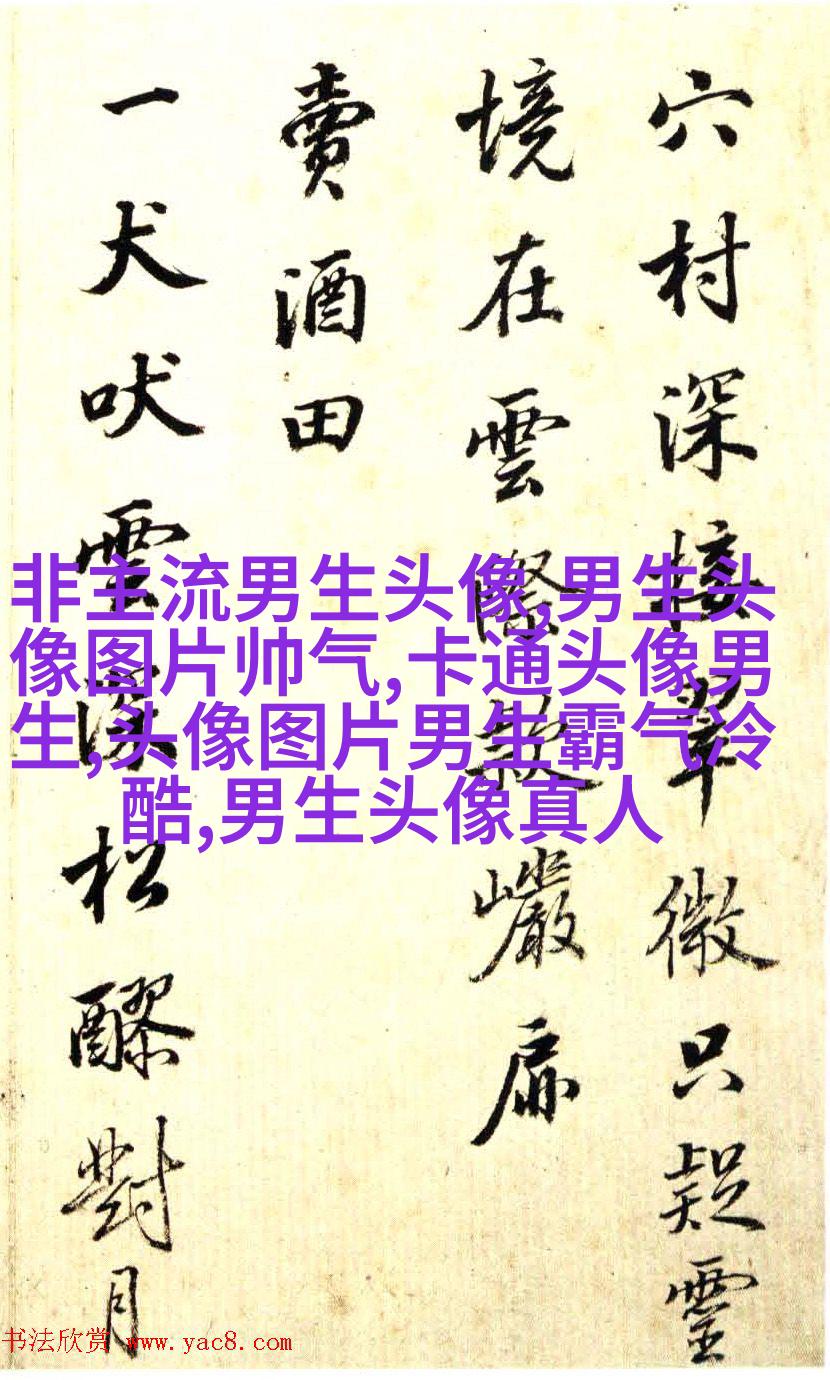 穴村深接翠微只疑靈
境在雲際敞巖扉
賣酒田
一犬吠雲深松醪對月
非主流男生头像,男生头
像图片帅气,卡通头像男
生,头像图片男生霸气冷
酷,男生头像真人
书法欣赏 www.yac8.com